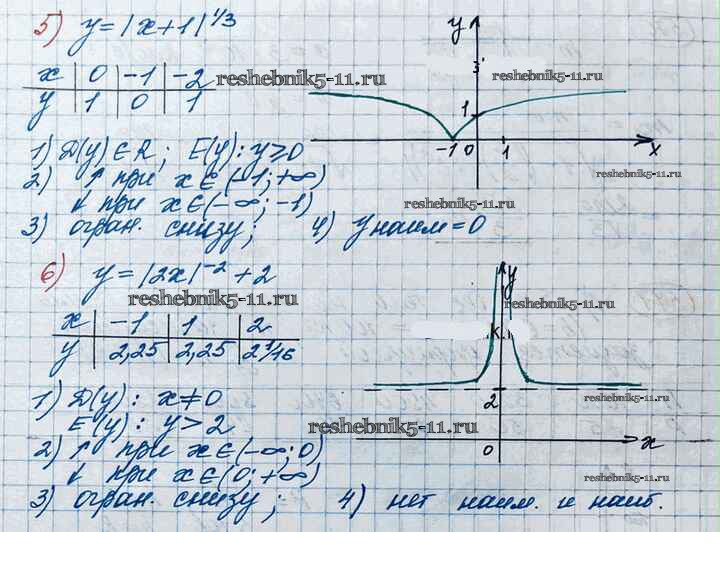 5) y = |x+1|^1/3
x | 0 | -1 | -2
y | 1 | 0 | 1
reshebnik5-11.ru
y
3
reshebnik5-11.ru
1
-1 0 1 x
1) D(y) ∈ R; E(y): y ≥ 0
2) ↑ при x ∈ (-1; +∞)
↓ при x ∈ (-∞; -1)
3) огран. снизу; 4) y наим = 0
reshebnik5-11.ru
reshebnik5-11.ru
6) y = |2x|^-2 + 2
reshebnik5-11.ru
x | -1 | 1 | 2
y | 2,25 | 2,25 | 2 1/16
y
reshebnik5-11.ru
2
0 x
1) D(y): x ≠ 0
E(y): y > 2
2) ↑ при x ∈ (-∞; 0)
↓ при x ∈ (0; +∞)
3) огран. снизу; 4) нет наим. и наиб.
reshebnik5-11.ru
reshebnik5-11.ru
reshebnik5-11.ru